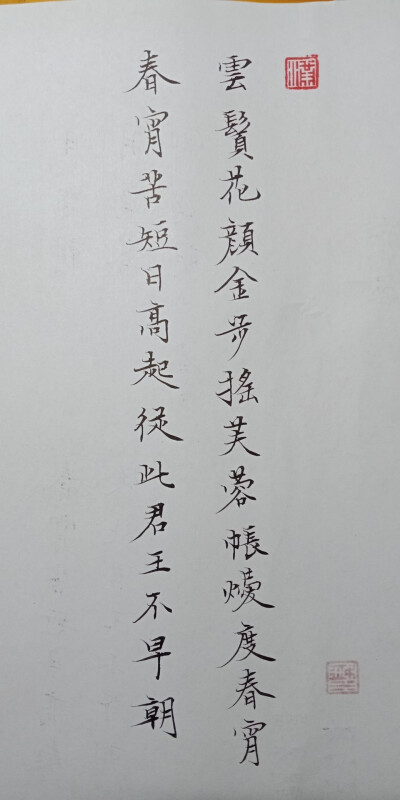 雲鬢花顔金步搖芙蓉帳煖度春宵
春宵苦短日高起從此君王不早朝